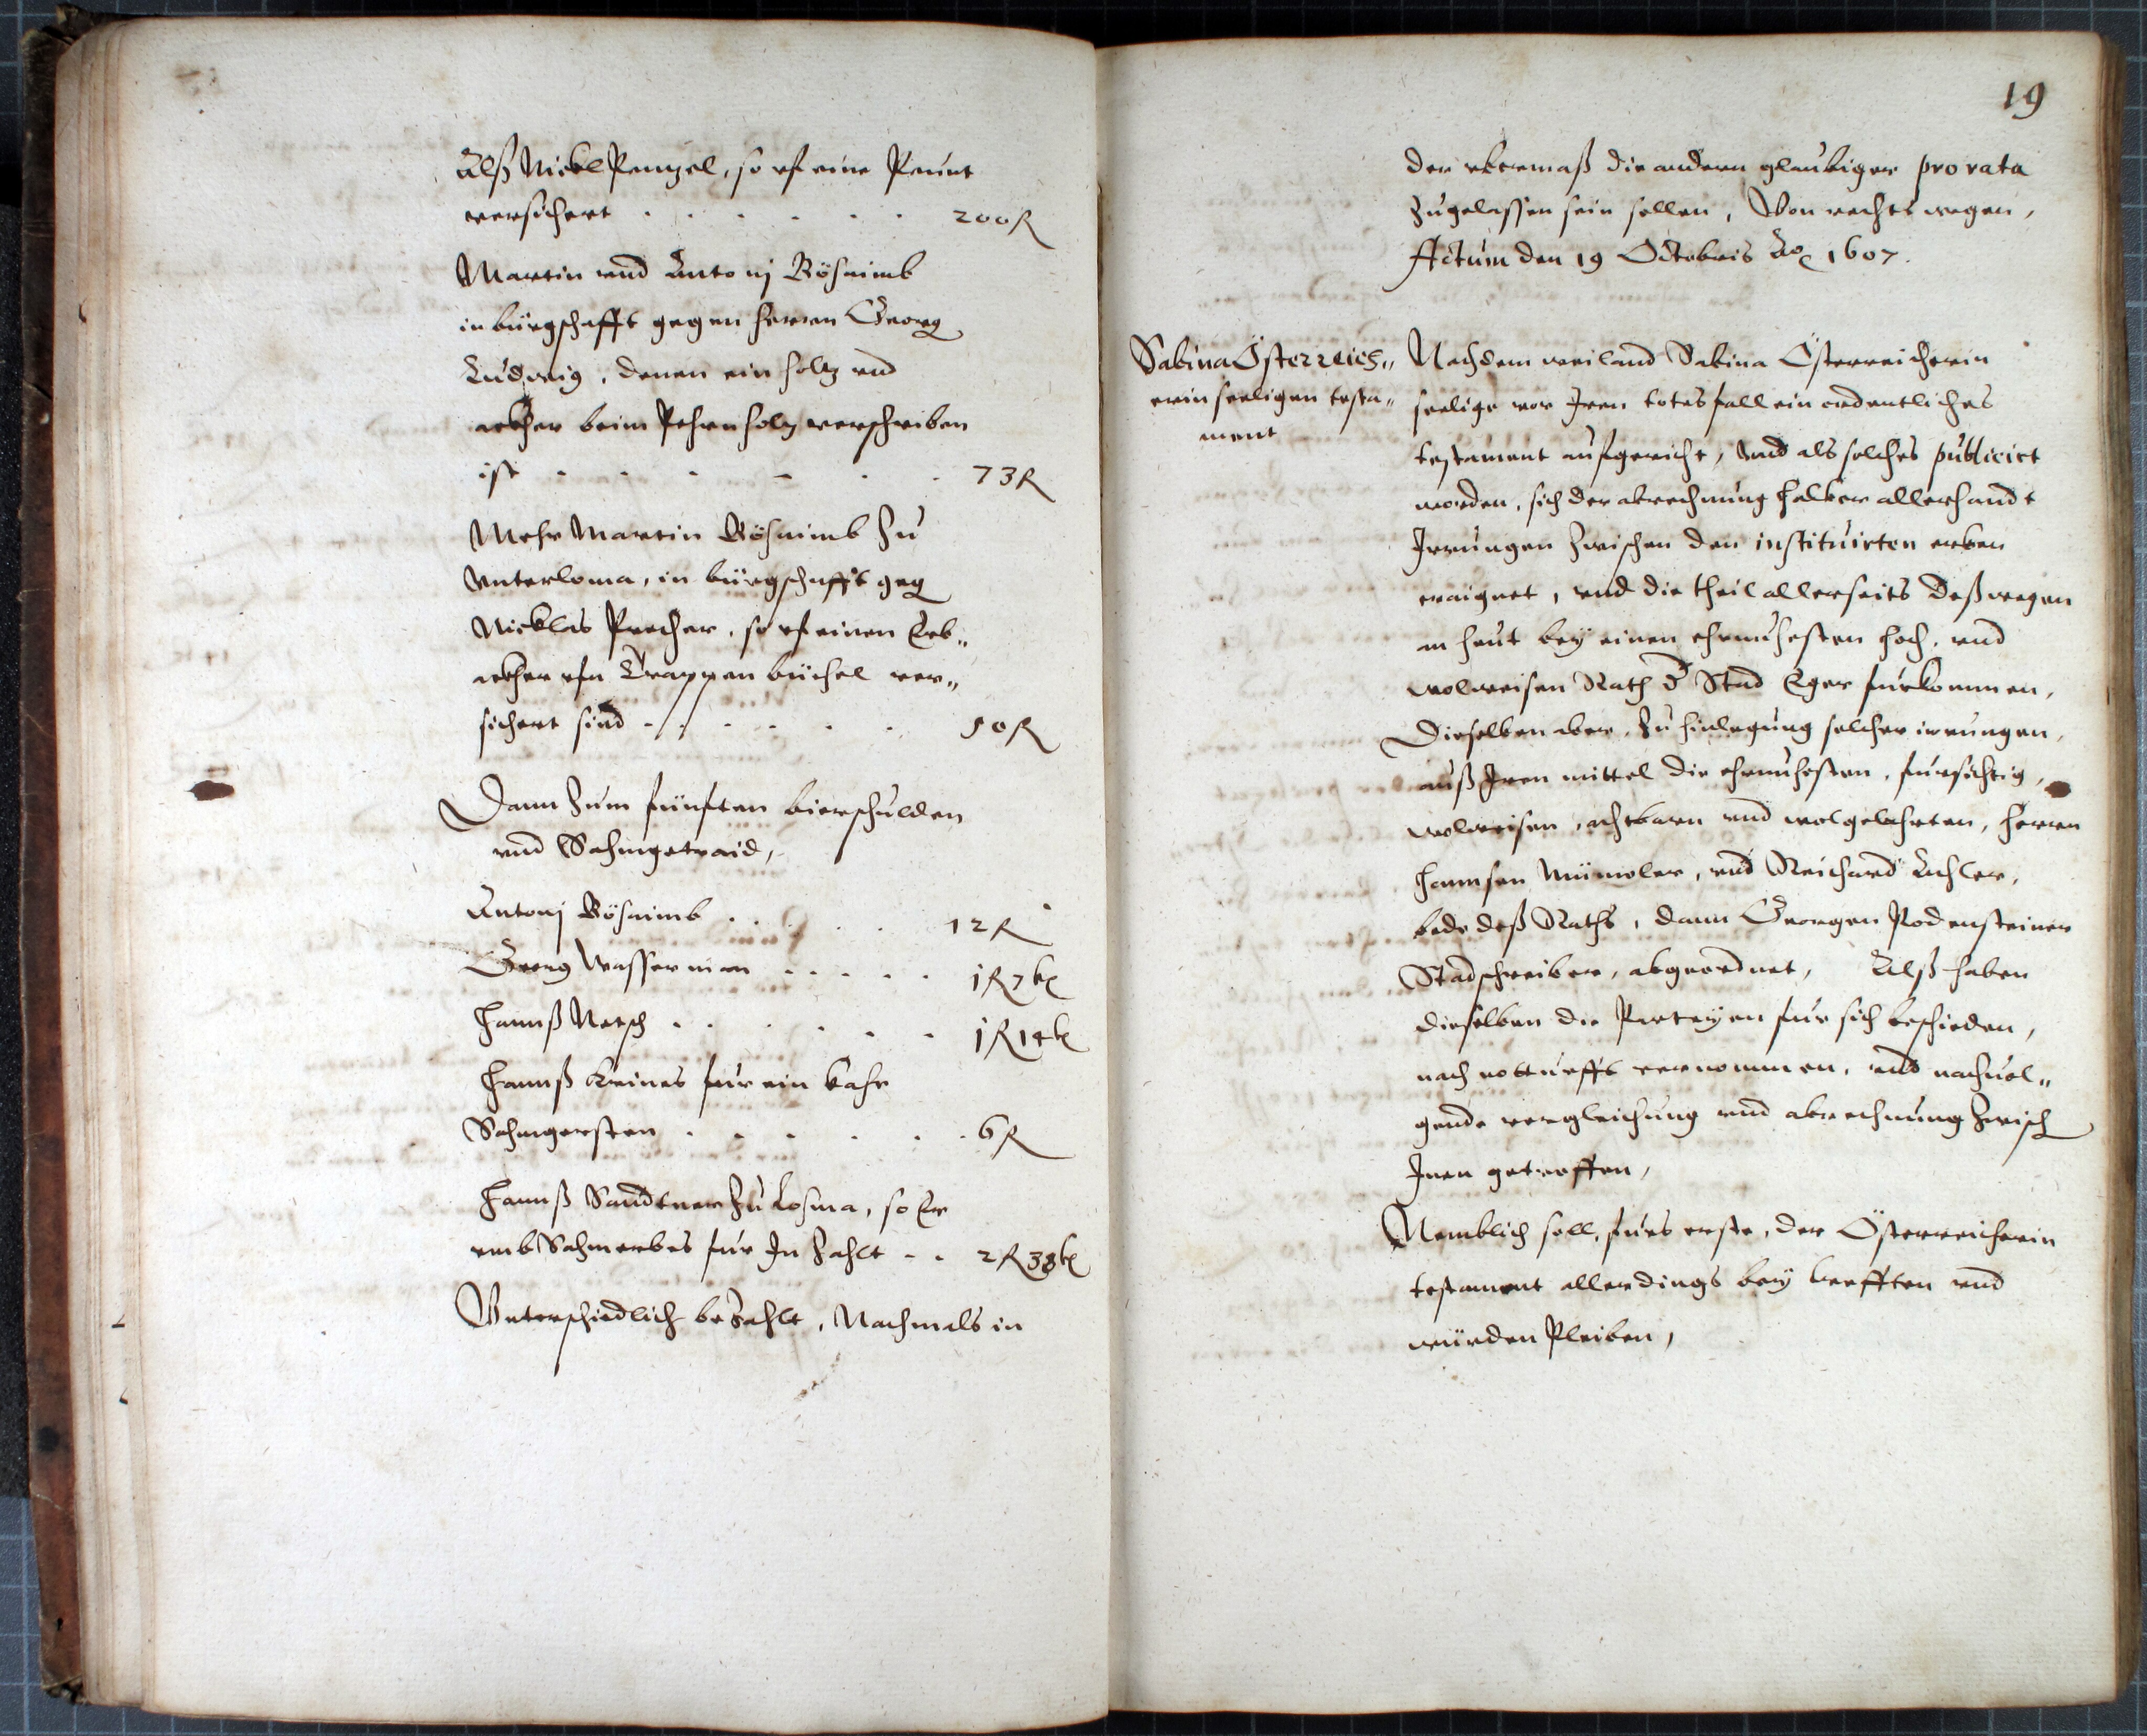 Alß Nickl Penzel, so vf eine Peunt
versichert . . . . . . 200 R
Martin vnd Antonj Bösnimb
in bürgschafft gegen herrn Georg
Ludwig, denen ein holtz vnd
ackher beim Pehrnholtz verschriben
ist . . . . . . 73 R
Mehr Martin Bösnimb zu
Vnterloma, in bürgschafft geg
Nicklas Precher, so vf einen Erb„
ackher vfn Trappenbüchel ver„
sichert sind . . . . 50 R
Dann zum fünften bierschulden
vnd Sahmgetraid,
Antonj Bösnimb . . . . 12 R
Georg Wasserman . . . . . 1 R 7 kr
Hannß Netsch . . . . . . 1 R 14 kr
Hannß Krines für ein kahr
Sahmgersten . . . . . . 6 R
Hannß Sandtner zu Losma, so Er
vmb Sahmerbes für In zahlt . . 2 R 38 kr
Vnterschiedlich bezahlt, Nachmals in
19
der vbermaß die andern glaubiger pro rata
zugelassen sein sollen, Von rechts wegen,
Actum den 19 Octobris Ao 1607.
Sabina Österreich„
erin seeligen testa„
ment
Nachdem weiland Sabina Österreicherin
seelige vor Iren totesfall ein ordentliches
testament aufgericht, vnd als solches publicirt
worden, sich der abrechnung halber allerhandt
Irrungen zwischen den instituirten erben
eraignet, vnd die theil allerseits deßwegen
an heut bey einen ehrnuhesten hoch, vnd
wolweisen Rath d Stad Eger fürkommen,
Dieselben aber, zu hinlegung solcher irrungen,
auß Iren mittel die ehrnuhesten, fürsichtig,
wolweisen, achtbarn vnd wolgelehrten, herrn
Hannsen Mümoler, vnd Reichard Achler,
bede deß Raths, dann Georgen Rodensteiner
Stadschreiber, abgeordnet, Alß haben
dieselben die Parteyen für sich beschieden,
nach notturfft vernommen, vnd nachuol„
gende vergleichung vnd abrechnung zwisch
Inen getroffen,
Nemblich soll, fürs erste, der Österreicherin
testament allerdings bey krefften vnd
würden Pleiben,